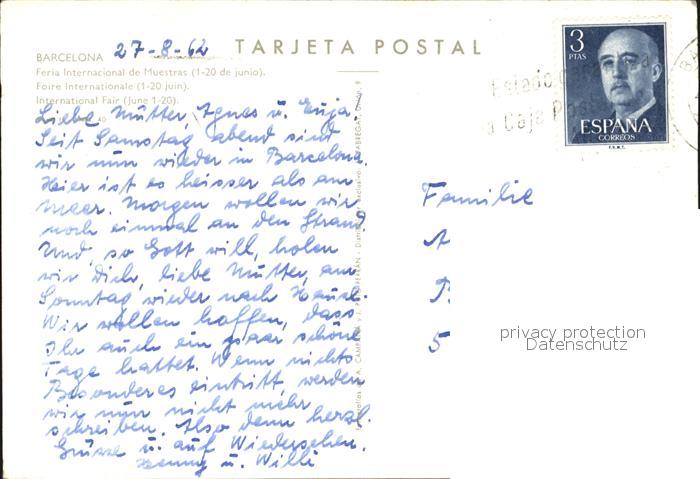 27-8-62
TARJETA POSTAL
BARCELONA
Feria Internacional de Muestras (1-20 de junio).
Foire Internationale (1-20 juin).
International Fair (June 1-20).
Liebe Mutter, Agnes u.
Seit Samstag abend sind
wir nun wieder in Barcelona.
Hier ist es heisser als am
Meer. Morgen wollen wir
noch einmal an den Strand
Und, so Gott will, holen
wir Dich, liebe Mutter, am
Sonntag wieder nach Hause.
Wir wollen hoffen, dass
Ihr auch ein paar schöne
Tage hattet. Wenn nichts
Besonderes eintritt werden
wir nun nicht mehr
schreiben. Also denn herzl.
Grüsse u. auf Wiedersehen.
u. Willi
3
PTAS
ESPAÑA
CORREOS
F.N.M.T.
Familie
A
5
privacy protection
Datenschutz